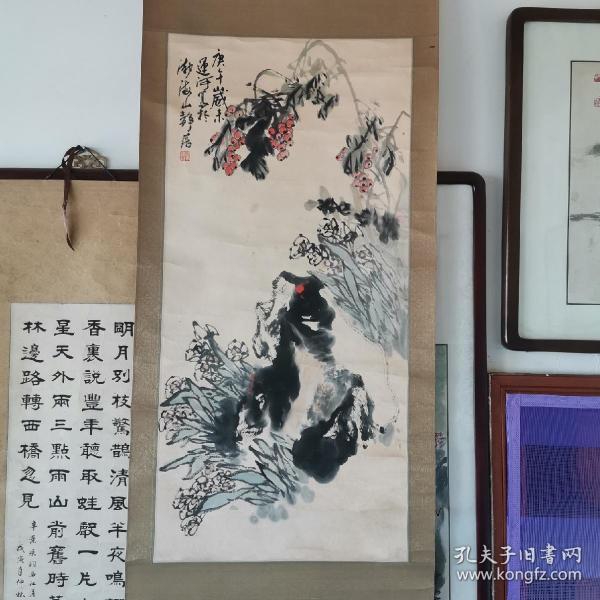 庚午歲末
運河寫於
渤海山靜居
明月別枝驚鵲清風半夜鳴
香裏說豐年聽取蛙聲一片
星天外兩三點雨山前舊時茅
林邊路轉西橋忽見
辛棄疾詞西江月
孔夫子旧书网
www.kongfz.com